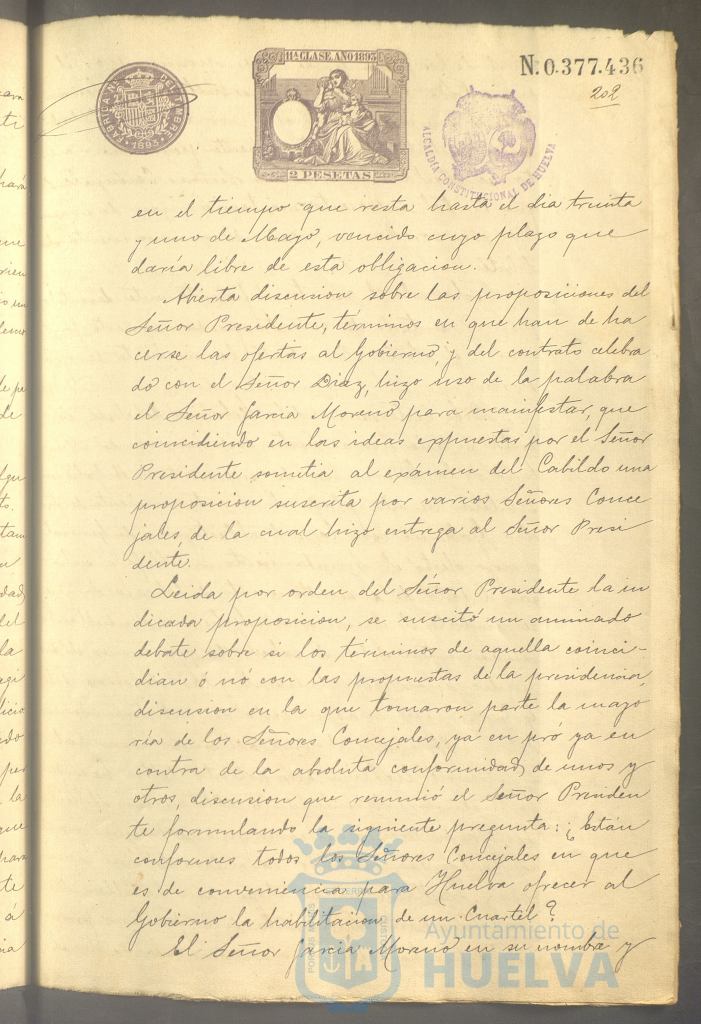 11ª CLASE. AÑO 1893
N. 0.377.436
202
FABRICA NAL DEL TIMBRE
1893
2 PESETAS
ALCALDÍA CONSTITUCIONAL DE HUELVA
en el tiempo que resta hasta el dia treinta
y uno de Mayo, vencido cuyo plazo que
daría libre de esta obligacion.
Abierta discusion sobre las proposiciones del
Señor Presidente, términos en que han de ha
cerse las ofertas al Gobierno y del contrato celebra
do con el Señor Diaz, hizo uso de la palabra
el Señor Garcia Moreno para manifestar, que
coincidiendo en las ideas expuestas por el Señor
Presidente somitia al exámen del Cabildo una
proposicion suscrita por varios Señores Conce
jales, de la cual hizo entrega al Señor Presi
dente.
Leida por orden del Señor Presidente la in
dicada proposicion, se suscitó un animado
debate sobre si los términos de aquella coinci-
dian ó nó con las propuestas de la presidencia,
discusion en la que tomaron parte la mayo
ría de los Señores Concejales, ya en pró ya en
contra de la absoluta conformidad de unos y
otros, discusion que resumió el Señor Presiden
te formulando la siguiente pregunta: ¿Están
conformes todos los Señores Concejales en que
es de conveniencia para Huelva ofrecer al
Gobierno la habilitacion de un Cuartel?
El Señor Garcia Moreno en su nombre y
Ayuntamiento de
HUELVA